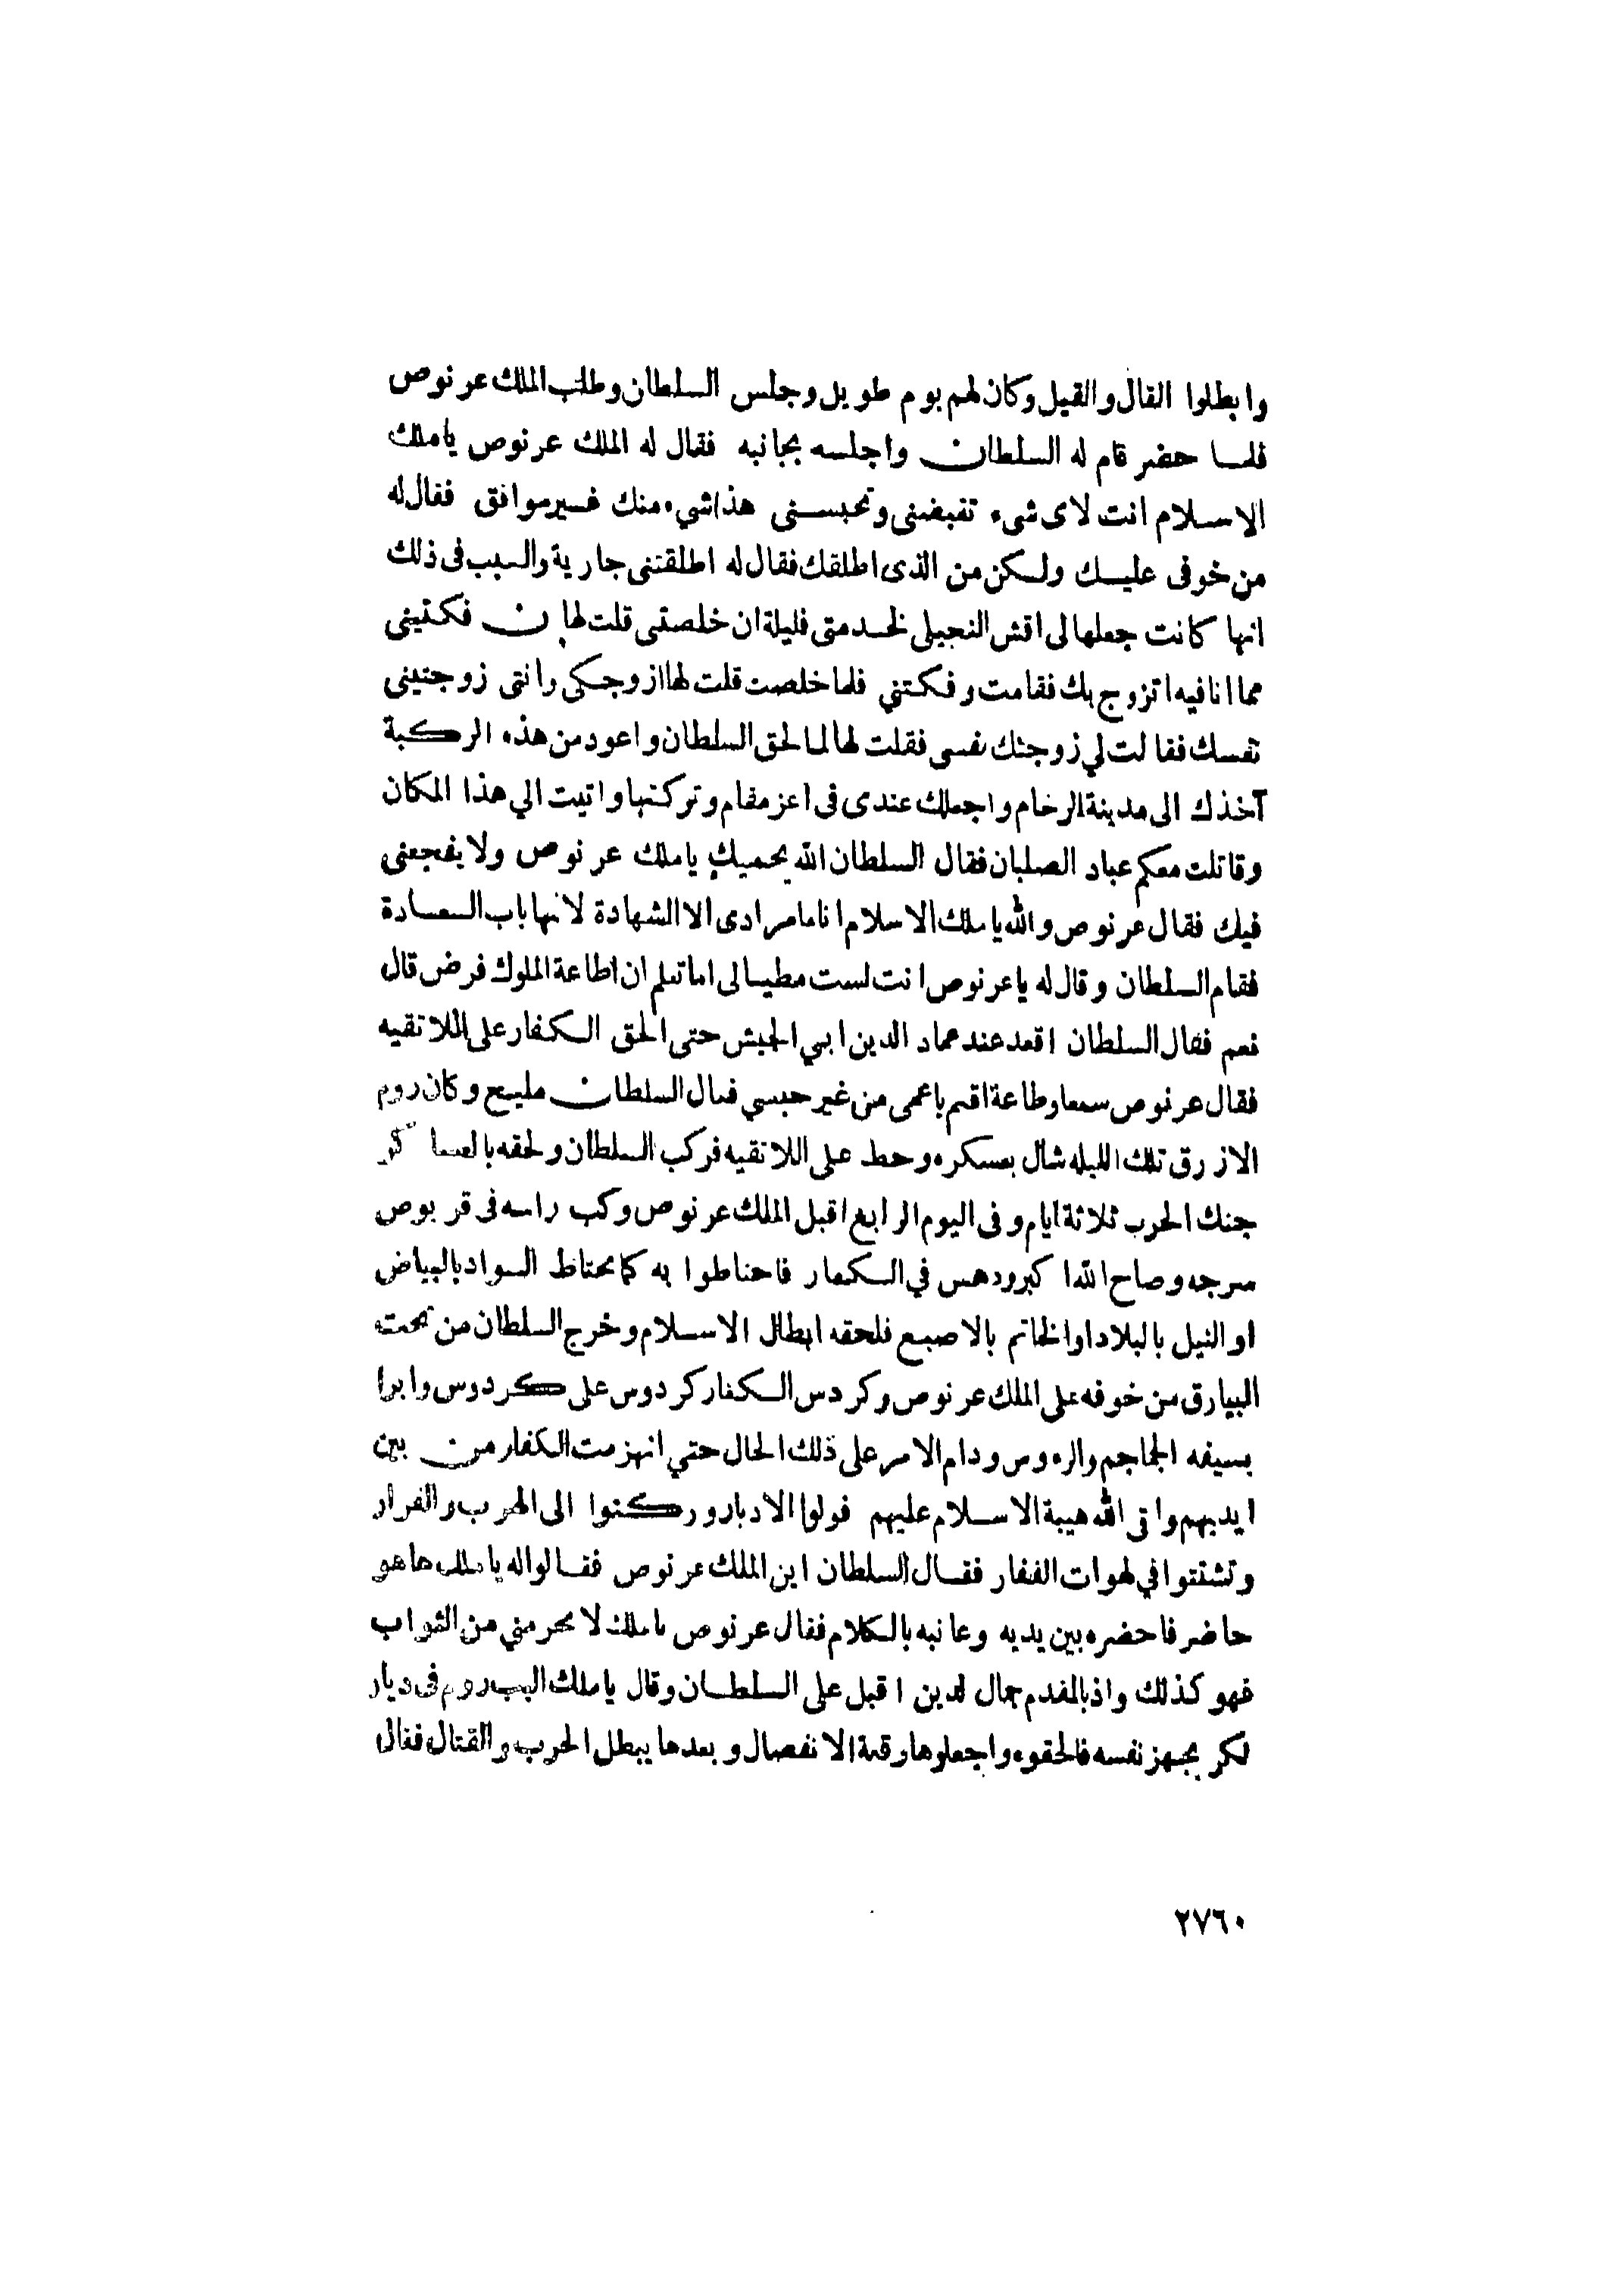 وابطلوا القال والقيل وكان لهم يوم طويل وجلس السلطان وطلب الملك عرنوص
فلما حضر قام له السلطان واجلسه بجانبه فقال له الملك عرنوص ياملك
الاسلام انت لاى شىء تقبضنى وتحبسنى هذا شيء منك غير موافق فقال له
من خوفى عليك ولكن من الذى اطلقك فقال له اطلقتنى جارية والسبب فى ذلك
انها كانت جعلها لى اقش النجيلى لخدمتى فليلة ان خلصتنى قلت لها ن فكتينى
مما انا فيه اتزوج بك فقامت وفكتني فلما خلصت قلت لها ازوجكى وانتى زوجتينى
نفسك فقالت لي زوجتك نفسى فقلت لها لما الحق السلطان واعود من هذه الركبة
آخذك الى مدينة الرخام واجعلك عندى فى اعز مقام وتركتها واتيت الي هذا المكان
وقاتلت معكم عباد الصلبان فقال السلطان الله يحميك ياملك عرنوص ولا يفجعنى
فيك فقال عرنوص والله ياملك الاسلام انا مامرادى الا الشهادة لانها باب السعادة
فقام السلطان وقال له ياعرنوص انت لست مطيعا لى اما تعلم ان اطاعة الملوك فرض قال
نعم فقال السلطان اقعد عند عماد الدين ابي الجيش حتى الحق الكفار على اللاتقيه
فقال عرنوص سمعا وطاعة اقم ياعمى من غير حبسي فقال السلطان مليح وكان روم
الازرق تلك الليله شال بعسكره وحط على اللاتقيه فركب السلطان ولحقه بالعساكر
جنك الحرب ثلاثة ايام وفى اليوم الرابع اقبل الملك عرنوص وكب راسه فى قربوص
سرجه وصاح الله اكبر ودهس في الكفار فاحتاطوا به كما يحتاط السواد بالبياض
او النيل بالبلاد او الخاتم بالاصبع فلحقه ابطال الاسلام وخرج السلطان من تحت
البيارق من خوفه على الملك عرنوص وكردس الكفار كردوس على كردوس وابرا
بسيفه الجماجم والرءوس ودام الامر على ذلك الحال حتي انهزمت الكفار من بين
ايديهم واتى الله هيبة الاسلام عليهم فولوا الادبار وركنوا الى الهرب والفرار
وتشتتوا في لهوات القفار فقال السلطان اين الملك عرنوص فقالوا له ياملك ها هو
حاضر فاحضره بين يديه وعاتبه بالكلام فقال عرنوص ياملك لا تحرمني من الثواب
فهو كذلك واذ بالمقدم جمال لدين اقبل على السلطان وقال ياملك البب روم فى ديار
لكر يجهز نفسه فالحقوه واجعلوها وقعة الانفصال وبعدها يبطل الحرب والقتال فقال
٢٧٦٠